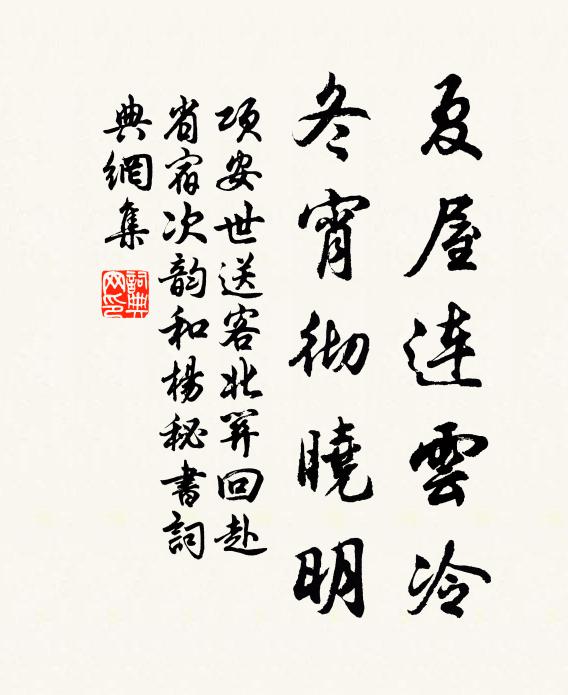 夏屋连雲冷
冬宵彻曉明
项安世送客北關回赴
省宿次韵和楊秘書詞
典網集
詞典网印